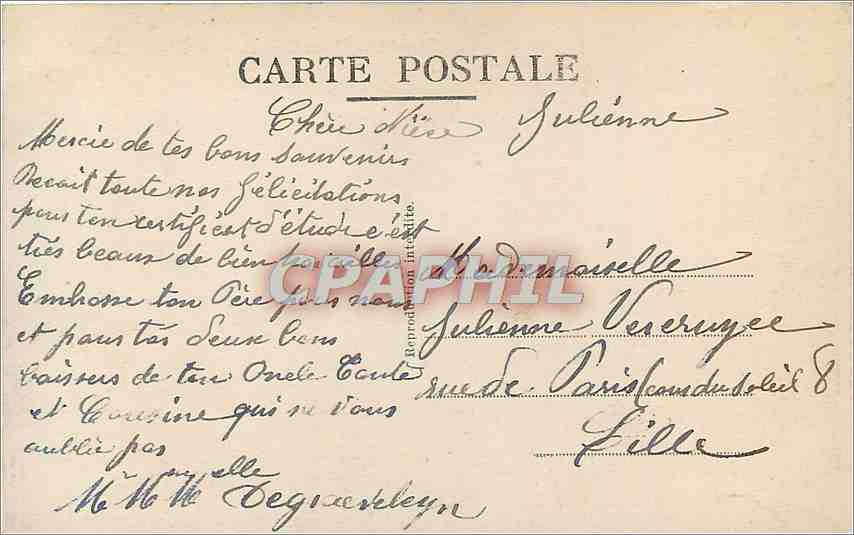 CARTE POSTALE
Chère Nièce Juliénne
Mercie de tes bons souvenirs
Recoit toute nos félicitations
pour ton certificat d'étude c'est
très beaux de bien travailler
Embrasse ton Père pour nous
et pour toi deux bons
baisers de ton Oncle Tante
et Cousine qui ne vous
oublie pas
M Mme Melle
Reproduction interdite.
Mademoiselle
Juliénne Vercruysse
rue de Paris (cour du Soleil 8
Lille
CPAPHIL